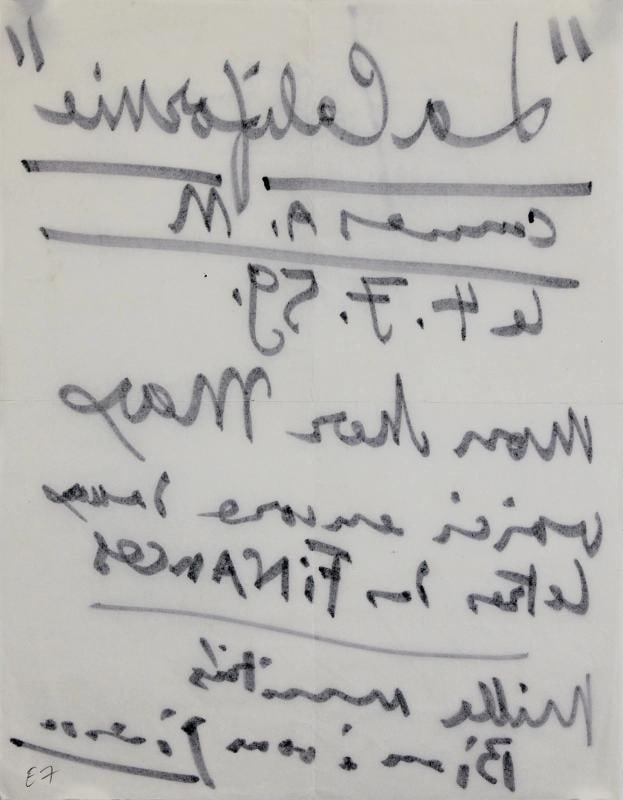 "La Californie"
Cannes A. M
le 4.7.59.
Mon cher Max
voici encore deux
lettres des FINANCES
Mille amitiés
Bien à vous Picasso
E7